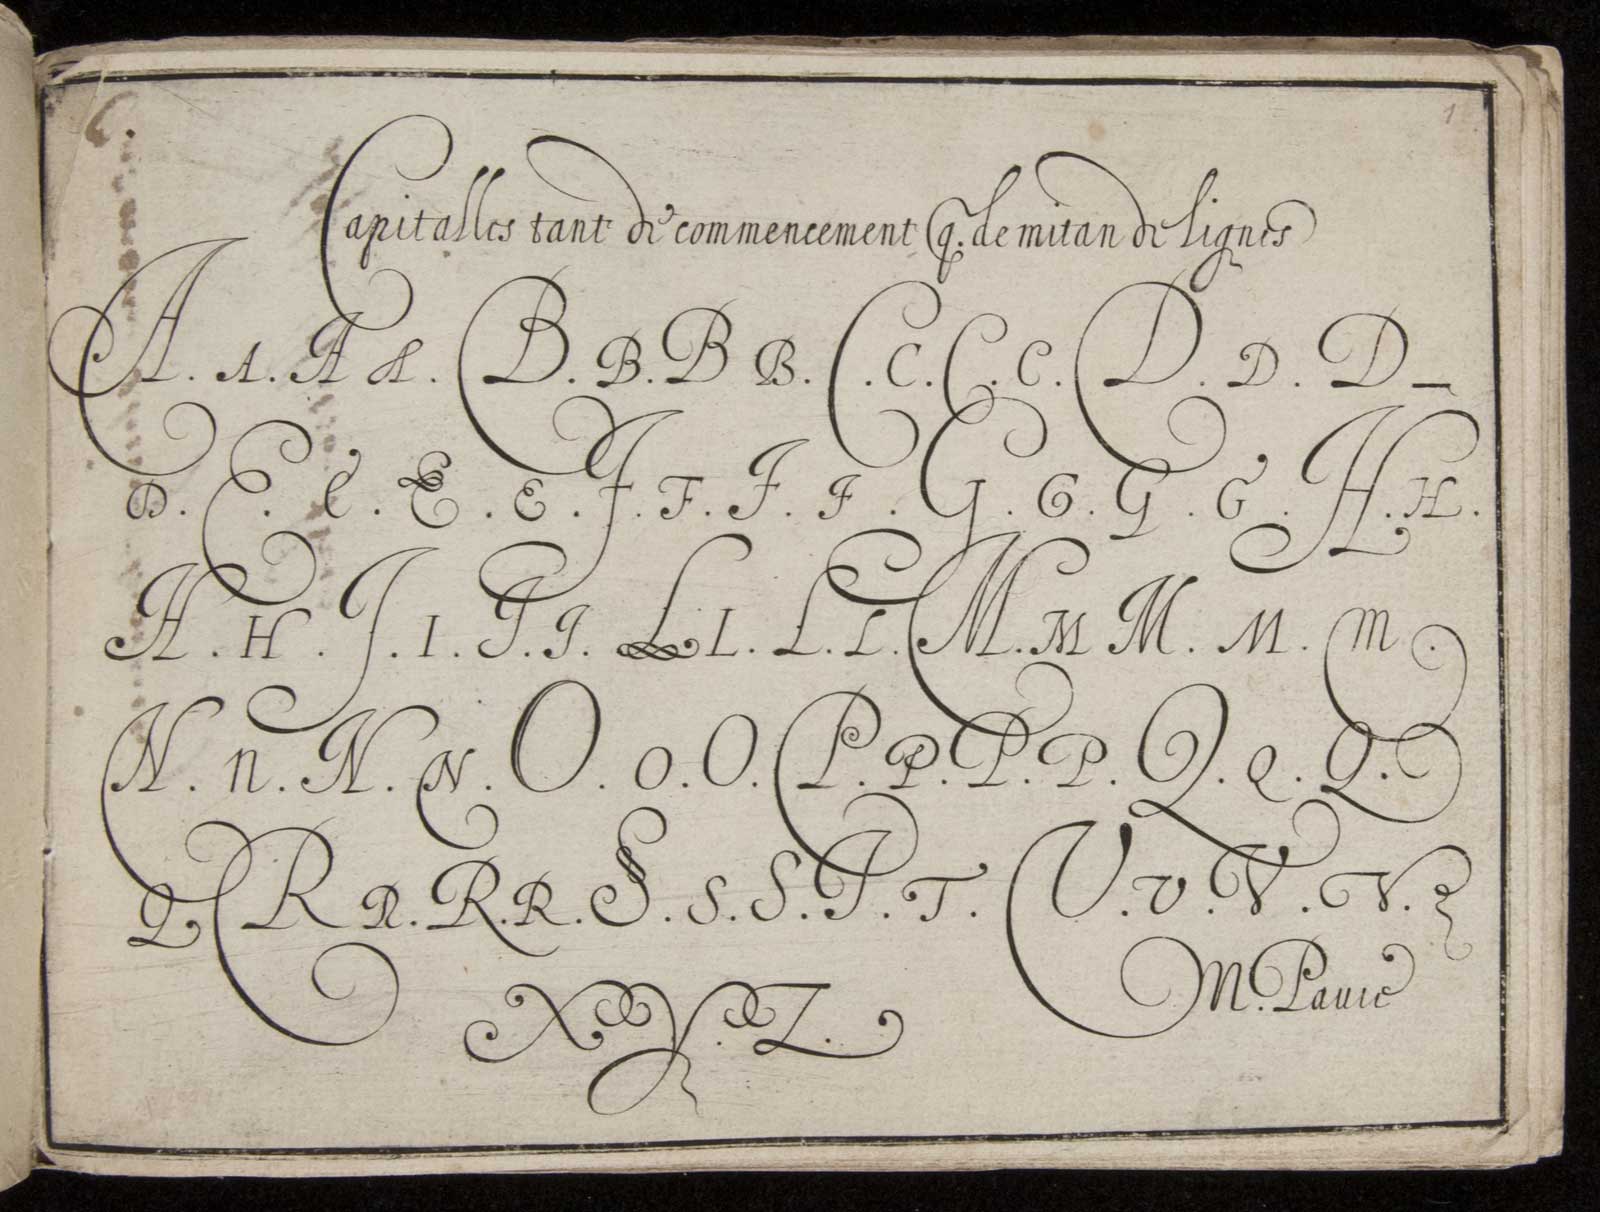 1
Capitalles tant de commencement q. de mitan de lignes
A. A. A A. B. B. B B. C. C. C. C. D. D. D_
D. E. E. E. E. F. F. F. F. G. G. G. G. H. H.
H. H. J. I. I. I. L L. L. L. M. M M. M. m.
N. n. N. N. O. o. O. P. P. P. P. Q. Q. Q.
Q. R R. R. R. S. S. S. T. T. V. v. V. V.
X. Y. Z.
M. Pavie